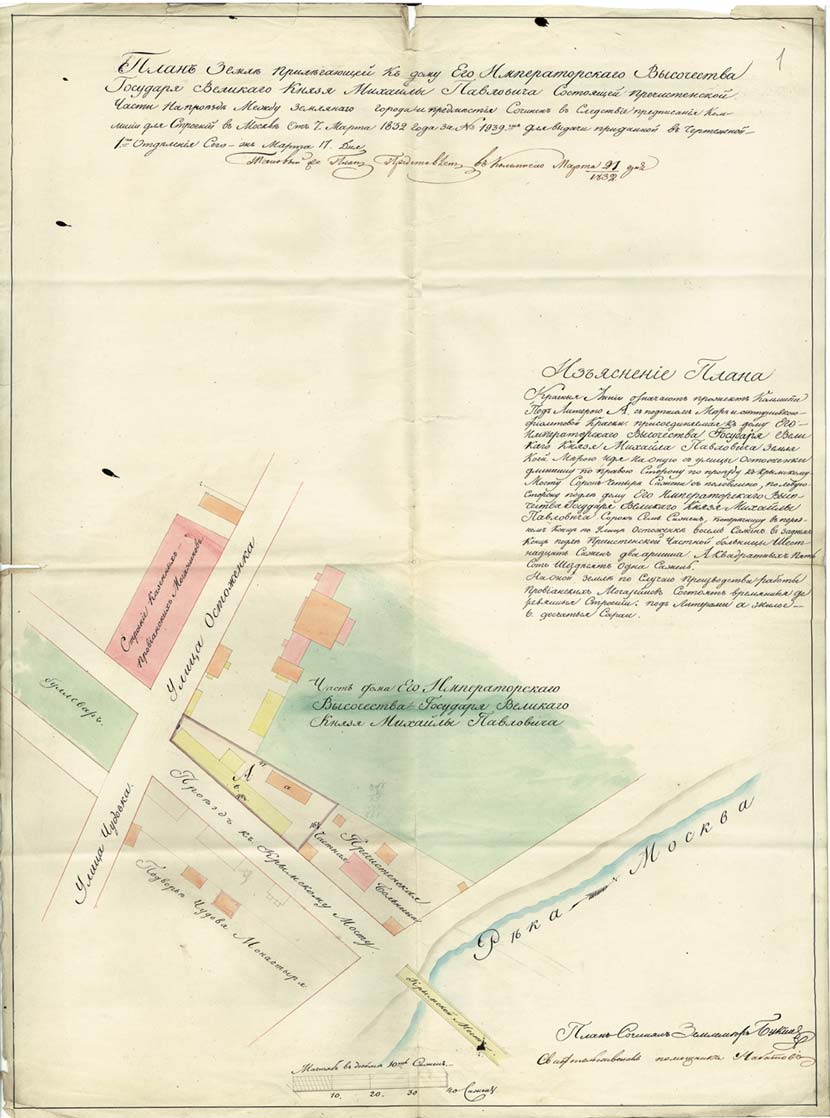 1
Планъ Землѣ прилѣгающей къ дому Его Императорскаго Высочества
Государя Великаго Князя Михайлы Павловича Состоящей Пречистенской
Части На проѣздѣ Между Землянаго города и предмѣстія Сочиненъ въ Следствіе предписанія Ком-
мисіи для Строеній въ Москвѣ Отъ 7. Марта 1832 года за № 1939 для выдачи приданной въ чертежной
1го Отдѣленія Сего Марта 17. Дня
Таковый же Планъ Представленъ въ Комиссію Марта 21 дня
1832
Изъясненіе Плана
Красныя Линіи означаютъ прожектъ Комисіи
Подъ Литерою А. съ
фіолетовой Краски. присоединяемая къ дому Его
Императорскаго Высочества Государя Вели-
каго Князя Михайла Павловича земля
Коей Мѣрою идя На оную съ улицы Остоженки
длиннику по правою Сторону по проѣзду къ Крымскому
Мосту Сорокъ Четыре Сажени съ половиною, по лѣвую
Сторону подлѣ дому Его Императорскаго Высо-
чества Государя Великаго Князя Михайлы
Павловича Сорокъ Семь Саженъ, поперешнику въ перед-
немъ Концѣ по Улицѣ Остоженкѣ восемь Саженъ въ заднемъ
Концѣ подлѣ Пречистенской Частной больницы Шест-
надцать Саженъ два аршина. А Квадратныхъ Пять
Сотъ Шездесятъ Одна Сажень.
На оной землѣ по Случаю производства работъ
Провіанскихъ Могазейновъ Состоятъ временныя де-
ревянныя Строеніи: подъ Литерами а жилое
в. досчатыя Сараи.
Строеніи Каменныхъ
Провіанскихъ Могазейновъ
Улица Остоженка
Буллеваръ.
Часть дома Его Императорскаго
Высочества Государя Великаго
Князя Михайлы Павловича
А
а
в
Улица Чудовка.
Проѣздъ къ Крымскому Мосту
Пречистенская
Частная
Больница
Подворье Чудова Монастыря
Рѣка Москва
Крымской Мостъ.
Планъ Сочинялъ Землемѣръ
Свидѣтельствовалъ помощникъ
Масштабъ въ дюймѣ 10ть Саженъ.
10. 20. 30 40 Саженъ